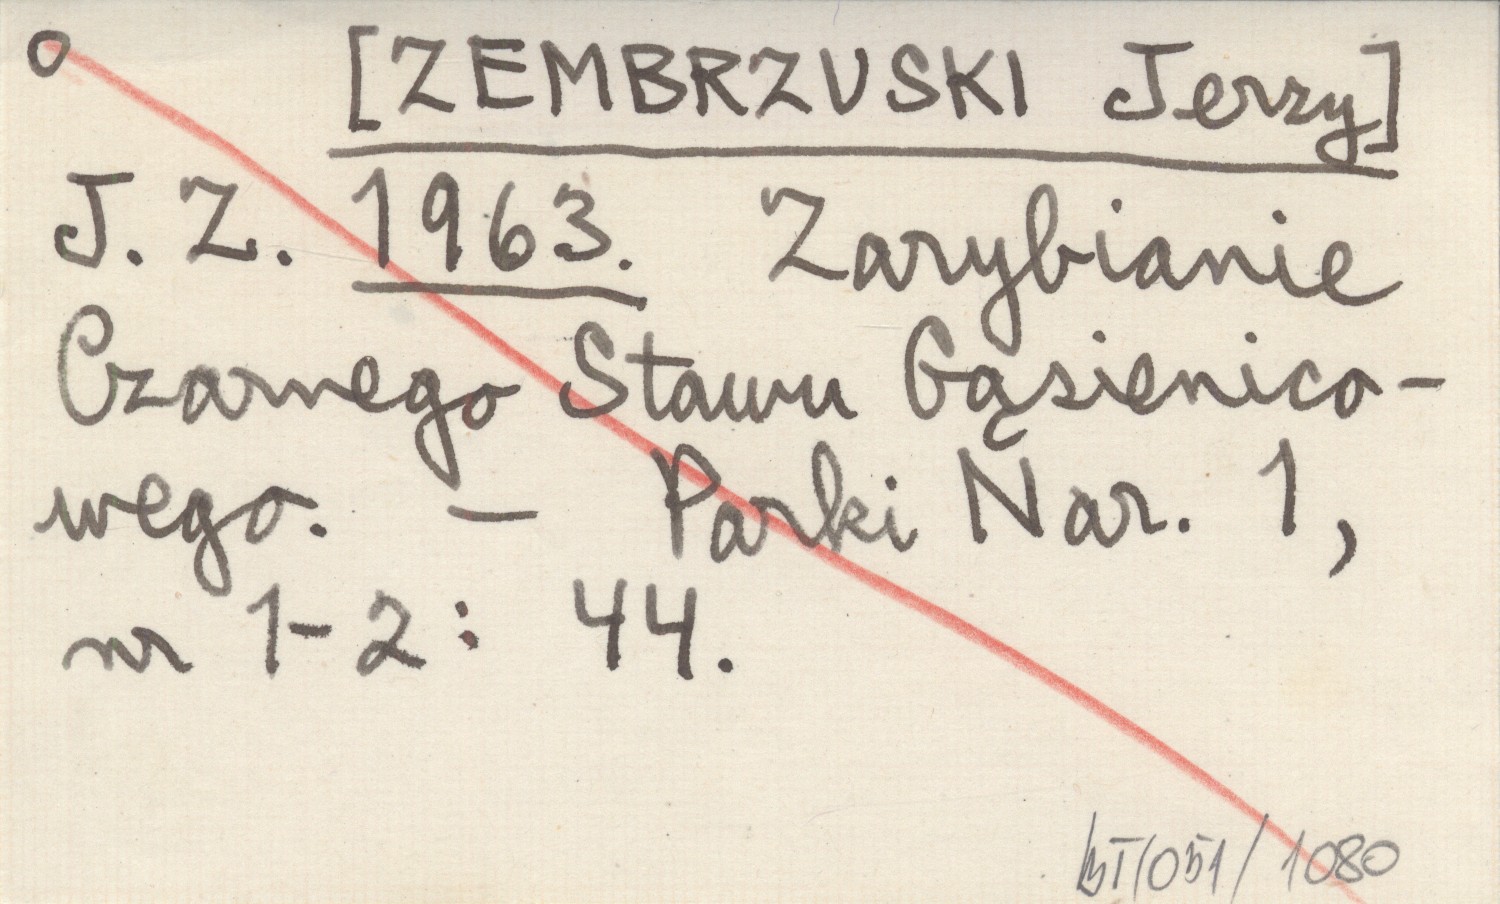 o [ZEMBRZUSKI Jerzy]
J. Z. 1963. Zarybianie
Czarnego Stawu Gąsienico-
wego. — Parki Nar. 1,
nr 1-2: 44.
/051/1080